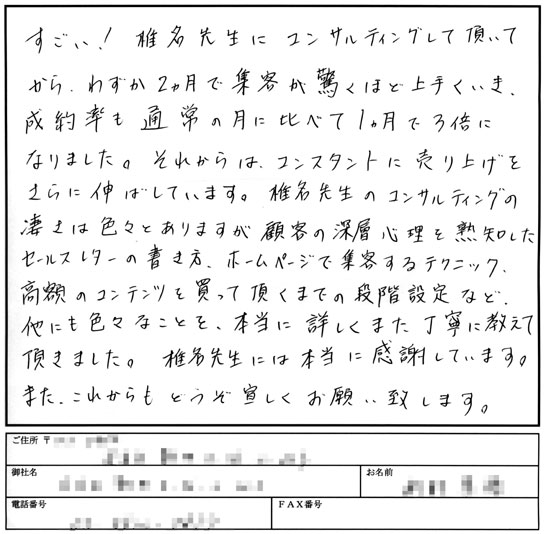 すごい! 椎名先生に コンサルティングして頂いて
から、わずか2ヵ月で集客が驚くほど上手くいき、
成約率も通常の月に比べて1ヵ月で3倍に
なりました。それからは、コンスタントに売り上げを
さらに伸ばしています。椎名先生のコンサルティングの
凄さは色々とありますが顧客の深層心理を熟知した
セールスレターの書き方、ホームページで集客するテクニック、
高額のコンテンツを買って頂くまでの段階設定など、
他にも色々なことを、本当に詳しくまた丁寧に教えて
頂きました。椎名先生には本当に感謝しています。
また、これからもどうぞ宜しくお願い致します。
ご住所 〒
御社名
お名前
電話番号
FAX番号